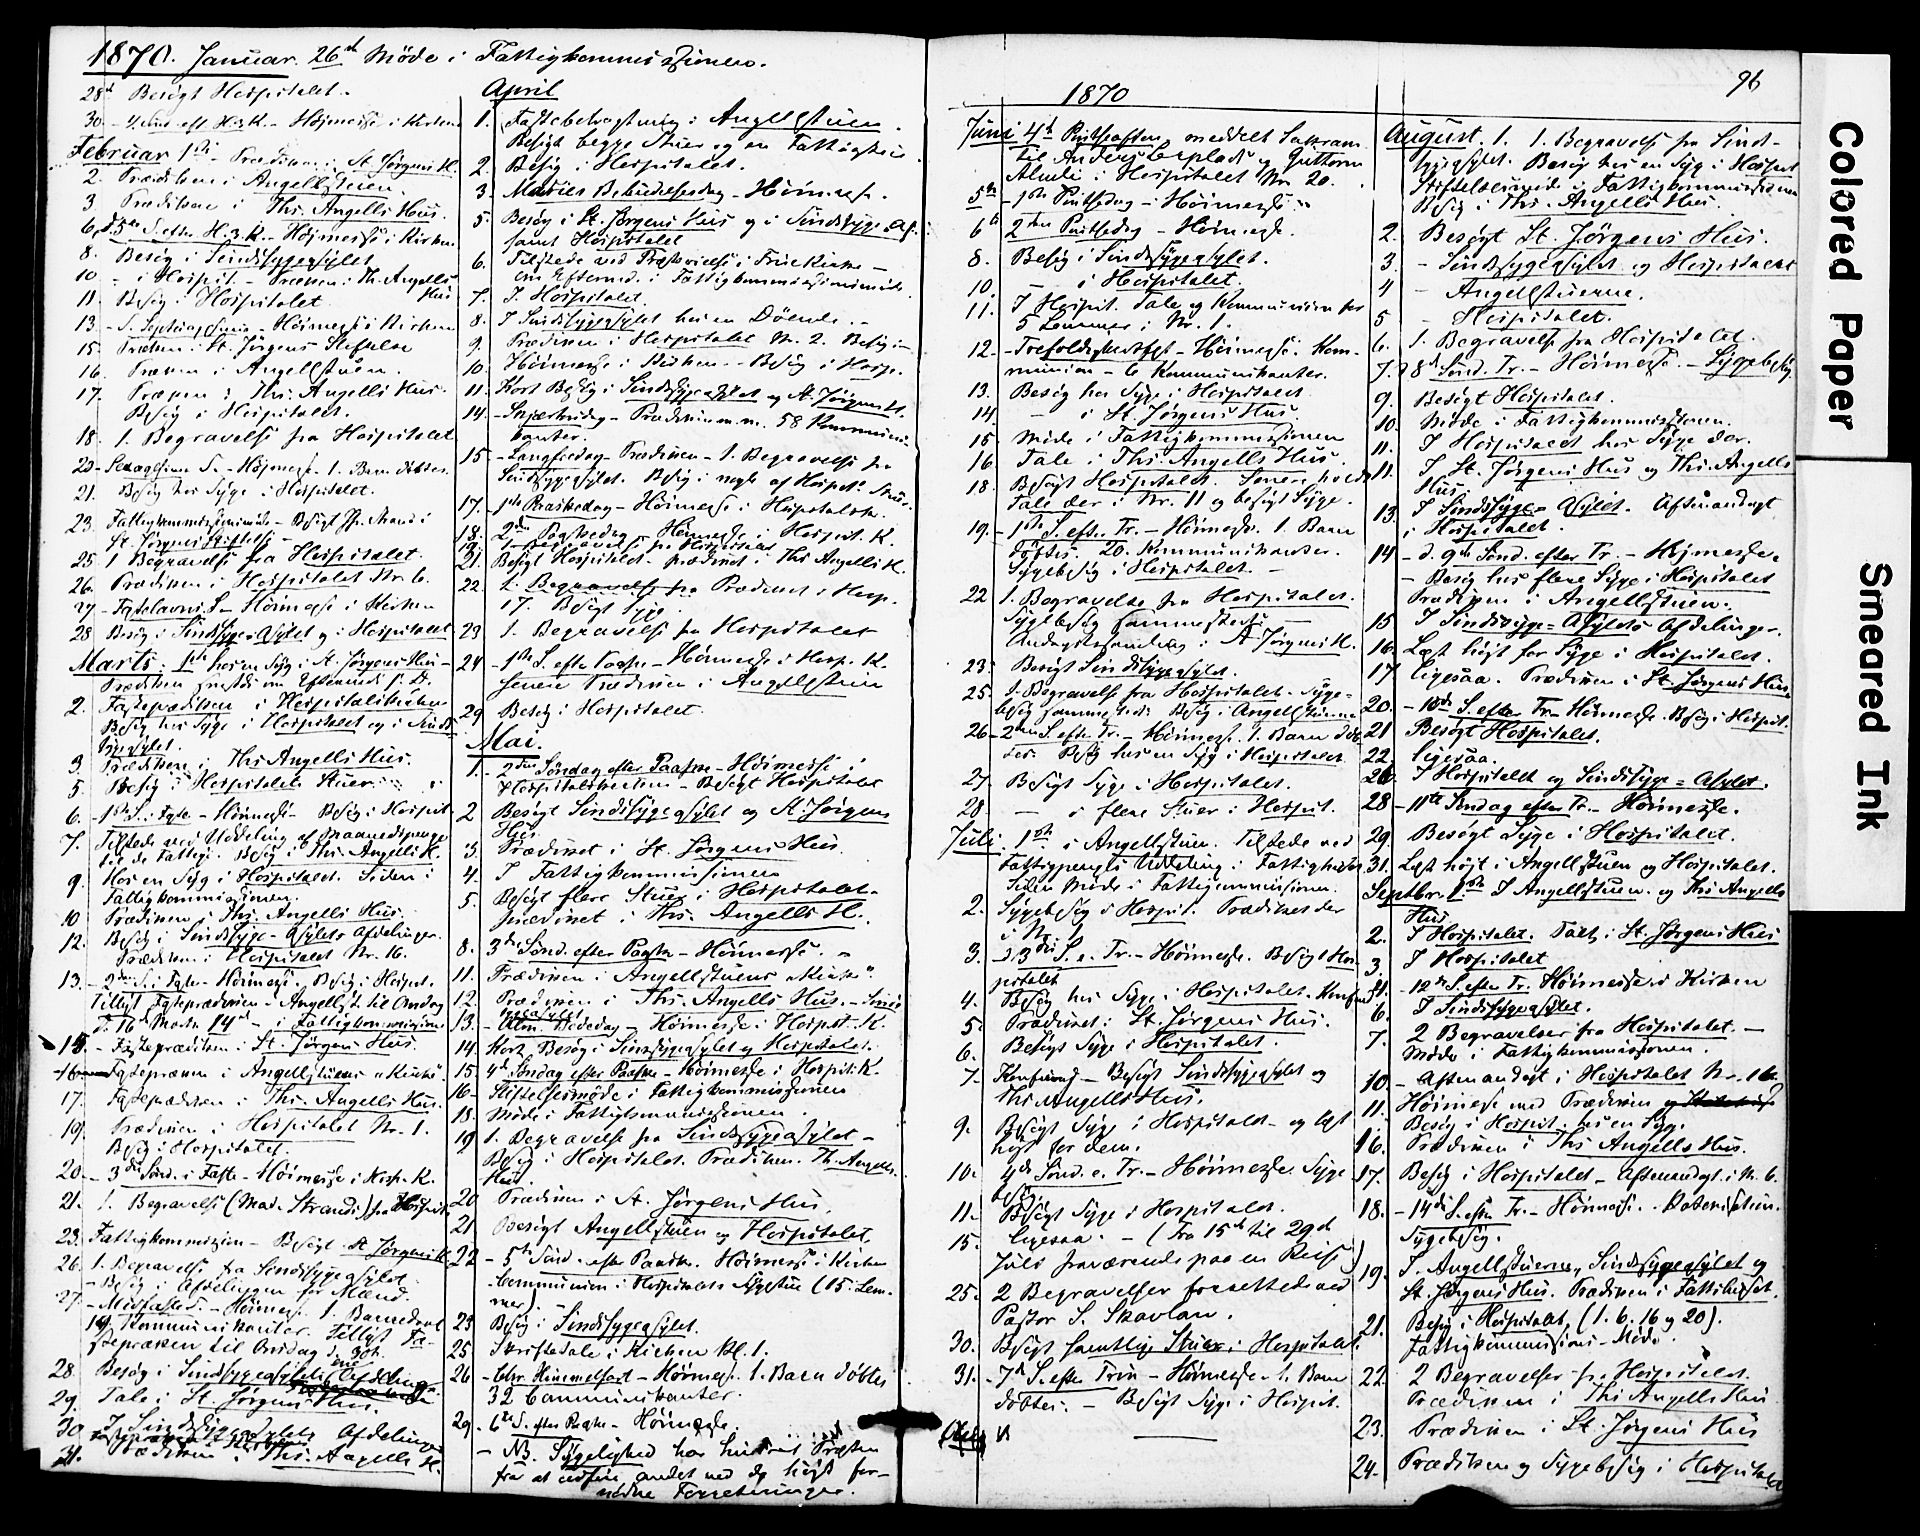 1870. Januar. 26de Möde i Fattigkommissionen.
28de Besögt Hospitalet.
30. - 4. Sönd. eft. H.3.K. - Höjmesse i Kirken
Februar 1ste - Prædiken i St. Jörgens H.
2. Prædiken i Angellstuen.
3. Prædiken i Ths. Angells Hus.
6. d. 5te S. efter H.3.K. - Höjmesse i Kirken
8. Besög i Sindssygeasylet
10. - i Hospit. - Prædiken i Th. Angells Hus
11. Besög i Hospitalet
13. - S. Septuagesima - Höimesse i Kirken
15. Prædiken i St. Jörgens Stiftelse
16. Prædiken i Angellstuen.
17. Prædiken i Ths. Angells Hus.
Besög i Hospitalet.
18. 1. Begravelse fra Hospitalet
20. - Sexagesima S. - Höjmesse. 1. Barn döbtes.
21. Besög hos Syge i Hospitalet.
23. Fattigkommissionsmöde - Besögt
St. Jörgens Stiftelse
25. 1 Begravelse fra Hospitalet.
26. Prædiken i Hospitalet Nr. 6.
27. - Fastelavns S. - Höimesse i Kirken
28. Besög i Sindssyge-Asylet og i Hospitalet
Marts. 1ste hos en Syg i St. Jörgens Hus -
Prædiken sammesteds om Eftermid. s. D.
2. Fasteprædiken i Hospitalskirken
Besög hos Syge i Hospitalet og i Sinds-
sygeasylet.
3. Prædiken i Ths. Angells Hus.
5. Besög i Hospitalets Stuer.
6. - 1ste S. i Faste - Höimesse - Besög i Hospit.
7. Tilstede ved Uddeling af Maanedspenge
til de Fattige. Besög i Ths. Angells H.
9. Hos en Syg i Hospitalet. Siden i
Fattigkommissionen.
10. Prædiken i Ths. Angells Hus.
12. Besög i Sindssyge-Asylets Afdelinger.
Prædiken i Hospitalet Nr. 16.
13. - 2den S. i Faste - Höimesse. Besög i Hospit.
Tillyst Fasteprædiken i Angellst. til Onsdag
d. 16de Marts. 14de - i Fattigkommissionen
15. - Fasteprædiken i St. Jörgens Hus.
16. Fasteprædiken i Angellstuens "Kirke".
17. Fasteprædiken i Ths. Angells Hus.
19. Prædiken i Hospitalet Nr. 1.
Besög i Hospitalet.
20. - 3die Sönd. i Faste - Höimesse i Hosp. K.
21. 1. Begravelse (Mad. Strand) fra Hospit.
23. Fattigkommission - Besögt St. Jörgens H.
26. 1. Begravelse fra Sindssygeasylet
- Besög i Afdelingen for Mænd.
27. - Midfaste S. - Höimesse. 1. Barnedaab
14 Kommunikanter. Tillyst Fa-
steprædiken til Onsdag d. 30te.
28. Besög i Sindssygeasylets ene Afdeling
29. Tale i St. Jörgens Hus.
30. I Sindssygeasylets Afdelinger
31. Prædiken i Ths. Angells H.
April
1. Fastebetragtning i Angellstuen.
Besögt begge Stuer og en Fattigstue
2. Besög i Hospitalet.
3. Mariæ Bebudelsesdag - Höimesse.
5. Besög i St. Jörgens Hus og i Sindssyge-As.
samt Hospitalet
6. Tilstede ved Prøstevielse i Frue Kirke -
om Eftermid. i Fattigkommissionsmöde.
7. I Hospitalet.
8. I Sindssygeasylet hos en Döende. -
9. Prædiken i Hospitalet Nr. 2. Besög i -
10. Höimesse i Kirken. - Besög i Hosp.
11. Kort Besög i Sindssygeasylet og St. Jörgens H.
14. - Skjærtorsdag - Prædiken m. m. 58 Kommuni-
kanter.
15. - Langfredag - Prædiken - 1. Begravelse fra
Sindssygeasylet. Besög i nogle af Hospit. Stuer.
17. - 1ste Paaskedag - Höimesse i Hospitalsk.
18. 2den Paaskedag - Höimesse i Hospit. K.
19. 1. Begravelse fra Hospitalet
21. Besögt Hospitalet - prædiket i Ths. Angells H.
22. 1. Begravelse fra Prædiket i Hosp.
17. Besögt Syge
23. 1. Begravelse fra Hospitalet
24. - 1ste S. efter Paaske - Höimesse i Hosp. K.
senere Prædiken i Angellstuen
29. Besög i Hospitalet.
Mai.
1. - 2den Söndag efter Paaske - Höimesse i
Hospitalskirken - Besögt Hospitalet
2. Besögt Sindssygeasylet og St. Jörgens
Hus.
3. Prædiket i St. Jörgens Hus.
4. I Fattigkommissionen
5. Besögt flere Stuer i Hospitalet.
prædiket i Ths. Angells H.
8. 3die Sönd. efter Paaske - Höimesse. -
11. Prædiken i Angellstuens "Kirke".
12. Prædiken i Ths. Angells Hus. - Sinds-
sygeasylet
13. - Alm. Bededag - Höimesse i Hospit. K.
14. Kort Besög i Sindssygeasylet og Hospitalet.
15. 4de Söndag efter Paaske - Höimesse i Hospit. K.
16. Stiftelsesmöde i Fattigkommissionen
18. Möde i Fattigkommissionen.
19. 1. Begravelse fra Sindssygeasylet -
Besög i Hospitalet. Prædiken. Th. Angells
Hus.
20. Prædiken i St. Jörgens Hus.
21. Besögt Angellstuen og Hospitalet.
22. - 5te Sönd. efter Paaske. Höimesse i Kirken
Communion i Hospitalets Sygestue (15. Lem-
mer) -
23. Besög i Sindssygeasylet.
25. Skriftetale i Kirken Kl. 1.
26. - Chr. Himmelfart - Höimesse. 1. Barn döbtes
32 Communikanter.
29. - 6te S. efter Paaske - Höimesse.
- NB. Sygelighed har hindret Præsten
fra at udföre andet end de höist for-
nödne Forretninger.
1870
96
Juni 4de Pintseaften meddelt Sakram.
til Anders Leplads og Guttorm
Almli i Hospitalet Nr. 20.
5te - 1ste Pintsedag - Höimesse
6te 2den Pintsedag - Höimesse.
8. Besög i Sindssygeasylet.
10. - i Hospitalet.
11. I Hospit. Tale og Kommunion for
5 Lemmer i Nr. 1.
12. - Trefoldighedsfest - Höimesse. Kom-
munion - 6 Kommunikanter.
13. Besög hos Syge i Hospitalet
14. - i St. Jörgens Hus
15. Möde i Fattigkommissionen
16. Tale i Ths. Angells Hus.
18. Besögt Hospitalet. Senere holdt
Tale der i Nr. 11 og besögt Syge.
19. - 1ste S. efter Tr. - Höimesse. 1. Barn
döbtes. 20. Kommunikanter.
Sygebesög i Hospitalet. -
22. 1. Begravelse fra Hospitalet.
Sygebesög sammesteds -
Andagtssamling i St. Jörgens H.
23. Besögt Sindssygeasylet.
25. 1. Begravelse fra Hospitalet. Syge-
besög sammesteds. Besög i Angellstuerne
26. - 2den S. efter Tr. - Höimesse. 1. Barn döb-
tes. Besög hos en Syg i Hospitalet
27. Besögt Syge i Hospitalet.
28. - i flere Stuer i Hospit.
Juli. 1ste i Angellstuen. Tilstede ved
Fattigpenges Uddeling i Fattighuset
Siden Möde i Fattigkommissionen.
2. Sygebesög i Hospit. Prædiket der
i Nr. 1
3. - 3die S. e. Tr. - Höimesse. Besögt Hos-
pitalet
4. Besög hos Syge i Hospitalet.
5. Prædiket i St. Jörgens Hus.
6. Besögt Syge i Hospitalet.
7. Konfirmand - Besögt Sindssygeasylet og
Ths. Angells Hus.
9. Besögt Syge i Hospitalet - og læst
höjt for dem.
10. 4de Sönd. e. Tr. - Höimesse. Syge
besög.
11. Besögt Syge i Hospitalet.
15. ligesaa. - (Fra 15de til 29de
Juli fraværende paa en Reise)
25. 2 Begravelser forrettede ved
Pastor S. Skavlan.
30. Besögt samtlige Stuer i Hospitalet.
31. - 7de S. efter Trin - Höimesse - 1. Barn
döbtes. - Besögt Syge i Hospit.
August. 1. 1. Begravelse fra Sinds-
sygeasylet. Besög hos en Syg i Hospit.
Stiftelsesmöde i Fattigkommissionen
Besög i Ths. Angells Hus.
2. Besögt St. Jörgens Hus.
3. - Sindssygeasylet og Hospitalet
4. - Angellstuerne.
5. - Hospitalet.
6. 1. Begravelse fra Hospitalet.
7. 8de Sönd. Tr. - Höimesse. - Sygebesög.
9. Besögt Hospitalet.
10. Möde i Fattigkommissionen.
11. I Hospitalet hos Syge der.
11. I St. Jörgens Hus og Ths. Angells
Hus.
13. I Sindssyge-Asylet. Aftenandagt
i Hospitalet.
14. - d. 9de Sönd. efter Tr. - Höjmesse.
- Besög hos flere Syge i Hospitalet
Prædiken i Angellstuen.
15. I Sindssyge-Asylets Afdelinger.
16. Læst höjt for Syge i Hospitalet.
17. ligesaa. Prædiken i St. Jörgens Hus
20. - 10de S. efter Tr. - Höimesse. Besög i Hospit.
21. Besögt Hospitalet.
22. ligesaa.
26. I Hospitalet og Sindssyge-Asylet.
28. - 11te Söndag efter Tr. - Höimesse.
29. Besögt Syge i Hospitalet.
31. Læst höjt i Angellstuen og Hospitalet.
Septbr. 1ste I Angellstuen og Ths. Angells
Hus.
2. I Hospitalet. Talt i St. Jörgens Hus
3. I Hospitalet
4. - 12te S. efter Tr. Höimesse i Kirken
6. I Sindssygeasylet.
7. 2 Begravelser fra Hospitalet. -
Möde i Fattigkommissionen.
10. - Aftenandagt i Hospitalet Nr. 16.
11. Höimesse med Prædiken
Besög i Hospit. hos en Syg.
16. Prædiken i Ths. Angells Hus.
17. Besög i Hospitalet - Aftenandagt i Nr. 6.
18. - 14de S. efter Tr. - Höimesse.
Sygebesög.
19. I Angellstuerne, Sindssygeasylet og
St. Jörgens Hus. Prædiken i Fattighuset.
21. Besög i Hospitalet, (1. 6. 16 og 20).
Fattigkommissions-Möde.
22. 2 Begravelser fra Hospitalet.
Prædiken i Ths. Angells Hus
23. Prædiken i St. Jörgens Hus
24. Prædiken og Sygebesög i Hospitalet
Colored Paper
Smeared Ink